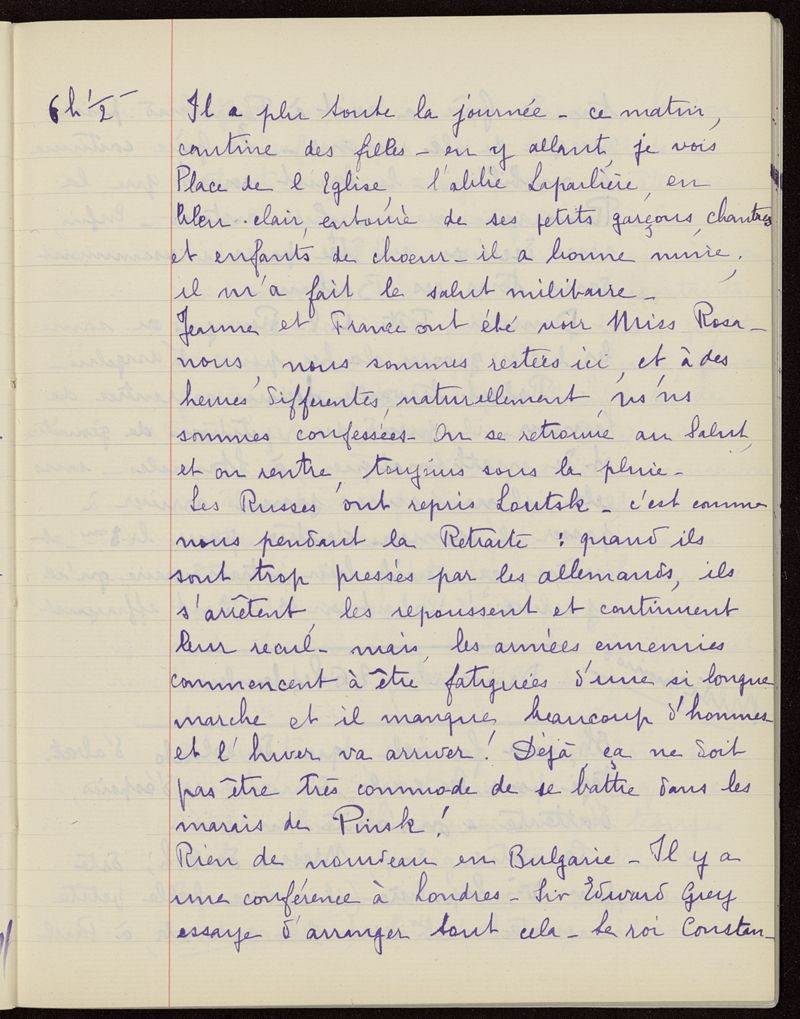 6h 1/2 - Il a plu toute la journée - ce matin,
cantine des filles - en y allant, je vois
Place de l'Eglise, l'abbé Laparlière, en
bleu-clair, entouré de ses petits garçons, chantres
et enfants de choeur - il a bonne mine,
il m'a fait le salut militaire -
Jeanne et France ont été voir Miss Rosa -
nous, nous sommes restées ici, et à des
heures différentes, naturellement, ns ns
sommes confessées - On se retrouve au Salut,
et on rentre, toujours sous la pluie -
Les Russes ont repris Loutsk - c'est comme
nous pendant la Retraite : quand ils
sont trop pressés par les allemands, ils
s'arrêtent, les repoussent et continuent
leur recul - mais, les armées ennemies
commencent à être fatiguées d'une si longue
marche et il manque beaucoup d'hommes -
et l'hiver va arriver ! Déjà, ça ne doit
pas être très commode de se battre dans les
marais de Pinsk !
Rien de nouveau en Bulgarie - Il y a
une conférence à Londres - Sir Edward Grey
essaye d'arranger tout cela - Le roi Constan-